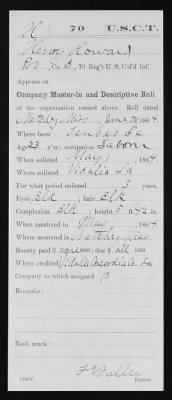 H 70 U.S.C.T.
Henry Howard
Pvt, Co. B, 70 Reg't U. S. Col'd Inf.
Appears on
Company Muster-in and Descriptive Roll
of the organization named above. Roll dated
Natchez Miss June 29, 1864.
Where born Tensas La
Age 23 y'rs; occupation Laborer
When enlisted May 1, 1864.
Where enlisted Vidalia La
For what period enlisted 3 years.
Eyes Blk; hair Blk
Complexion Blk; height 5 ft. 7½ in.
When mustered in May 1, 1864
Where mustered in Natchez Miss
Bounty paid $ none 100; due $ all 100
Where credited Vidalia Concordia La
Company to which assigned B
Remarks:
Book mark:
(356d) Copyist.